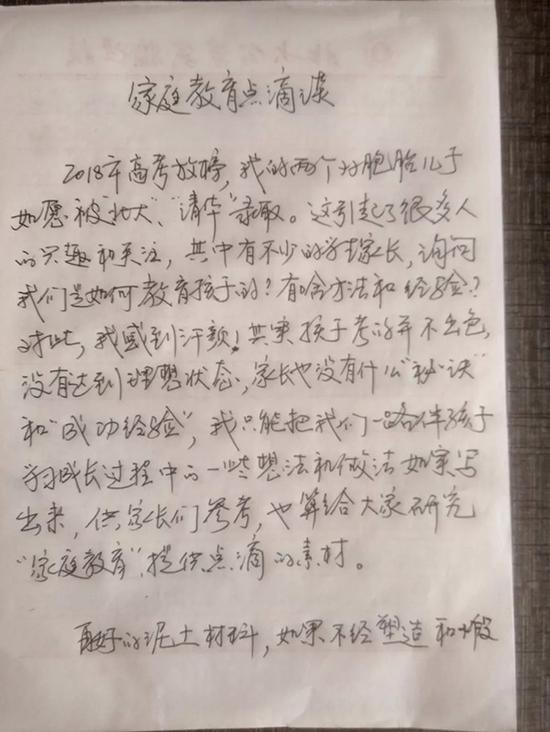 家庭教育点滴谈
2018年高考放榜，我的两个双胞胎儿子
如愿被“北大”、“清华”录取。这引起了很多人
的兴趣和关注，其中有不少的学生家长，询问
我们是如何教育孩子的？有啥方法和经验？
对此，我感到汗颜！其实孩子考的并不出色，
没有达到理想状态，家长也没有什么“秘诀”
和“成功经验”，我只能把我们一路伴孩子
学习成长过程中的一些想法和做法如实写
出来，供家长们参考，也算给大家研究
“家庭教育”提供点滴的素材。
再好的泥土材料，如果不经塑造和煅